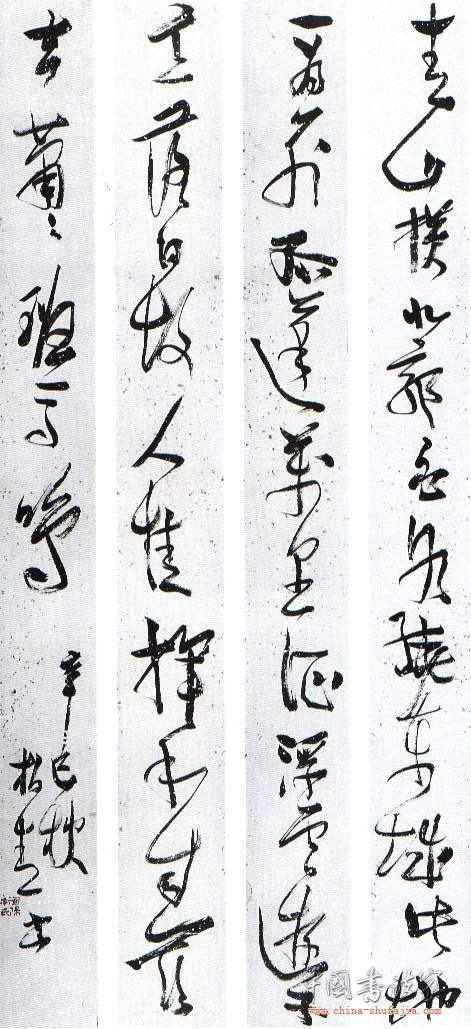 青山橫北郭白水繞東城此地
一為別孤蓬萬里征浮雲遊子
意落日故人情揮手自茲
去蕭〻班馬鳴
辛巳秋
中國書法家
www.china-shufajia.com